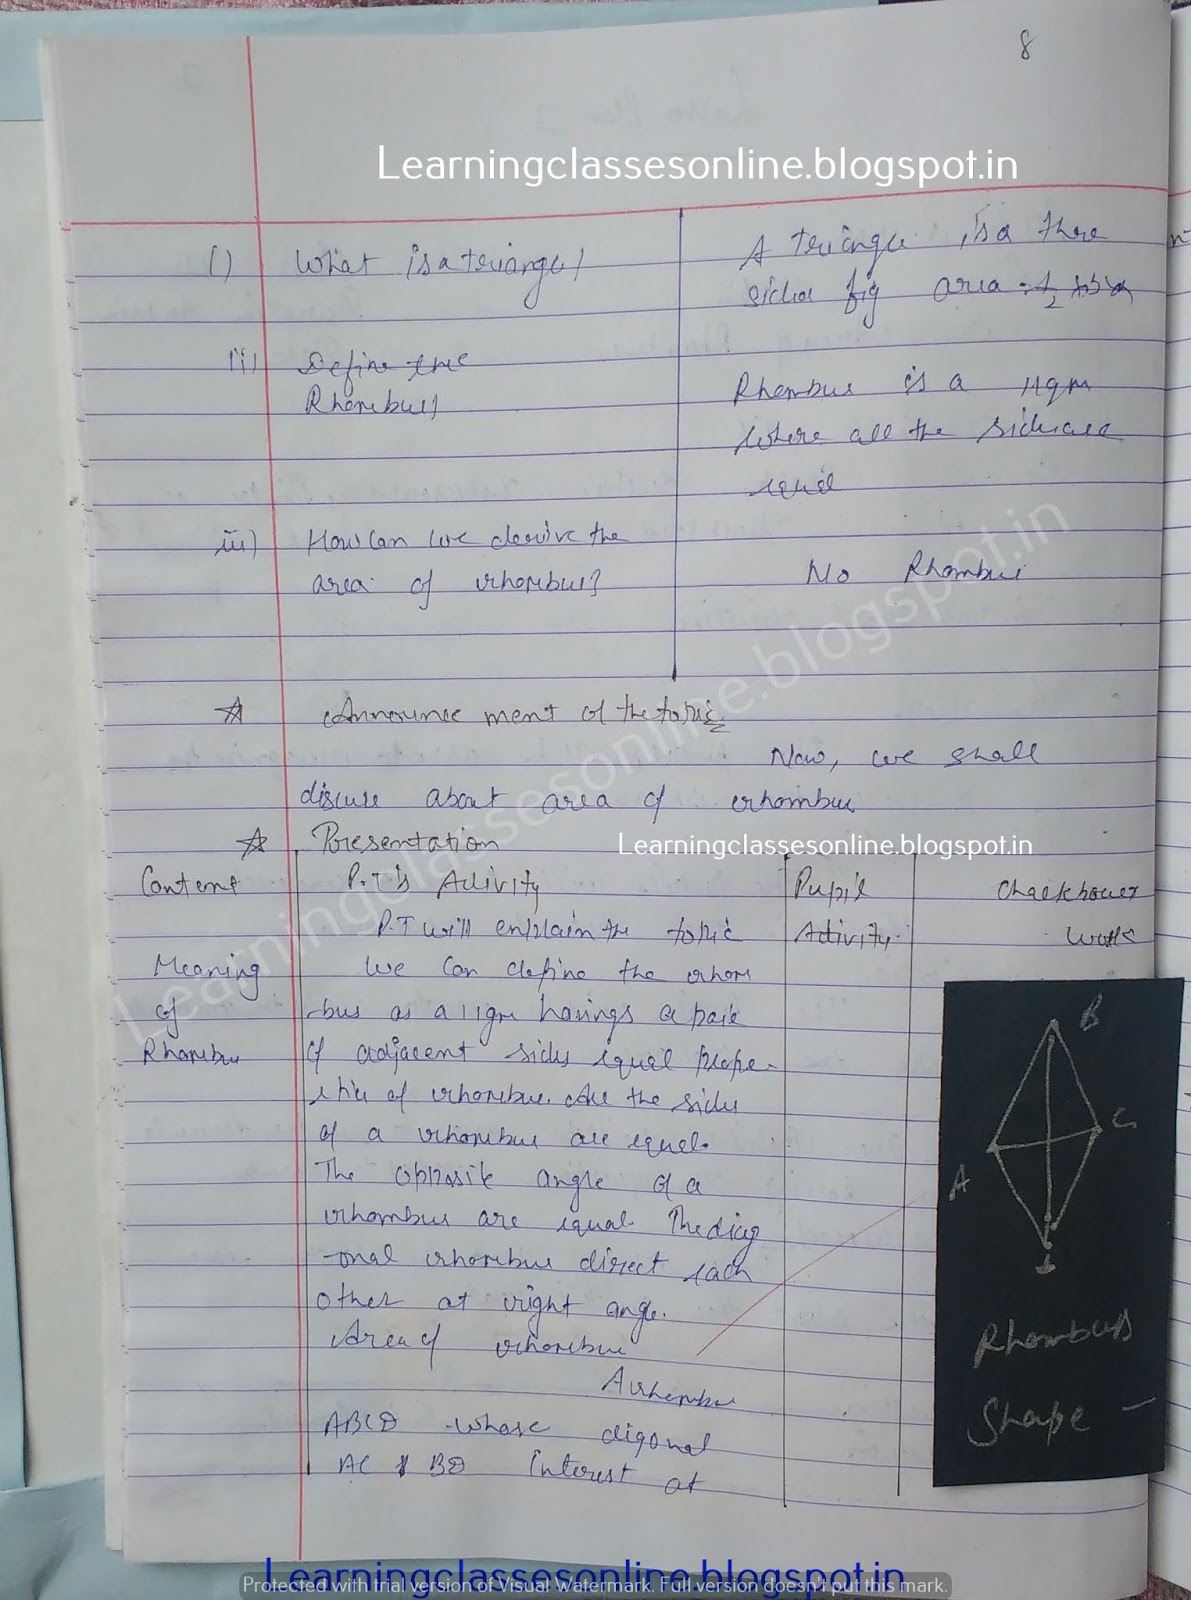 8
Learningclassesonline.blogspot.in
i) What is a triangle?
A triangle is a three
sided fig area = 1/2 ×b×
ii) Define the
Rhombus?
Rhombus is a 11gm
where all the sides are
equal
iii) How can we derive the
area of rhombus?
No Rhombus
Announcement of the topic
Now, we shall
discuse about area of rhombus
Presentation
Learningclassesonline.blogspot.in
Content P.T's Activity Pupil Chalkboard
P.T will explain the topic Activity work
Meaning We can define the rhom
of -bus as a 11gm havings a pair
Rhombus of adjacent sides equal prope-
rties of rhombus. All the sides
of a rhombus are equal.
The opposite angle of a
rhombus are equal. The diag
-onal rhombus bisect each
other at right angle.
Area of rhombus
A rhombus
ABCD whose digonal
AC & BD interest at
B
C
A
Rhombus
Shape -
Learningclassesonline.blogspot.in
Learningclassesonline.blogspot.in
Protected with trial version of Visual Watermark. Full version doesn't put this mark.